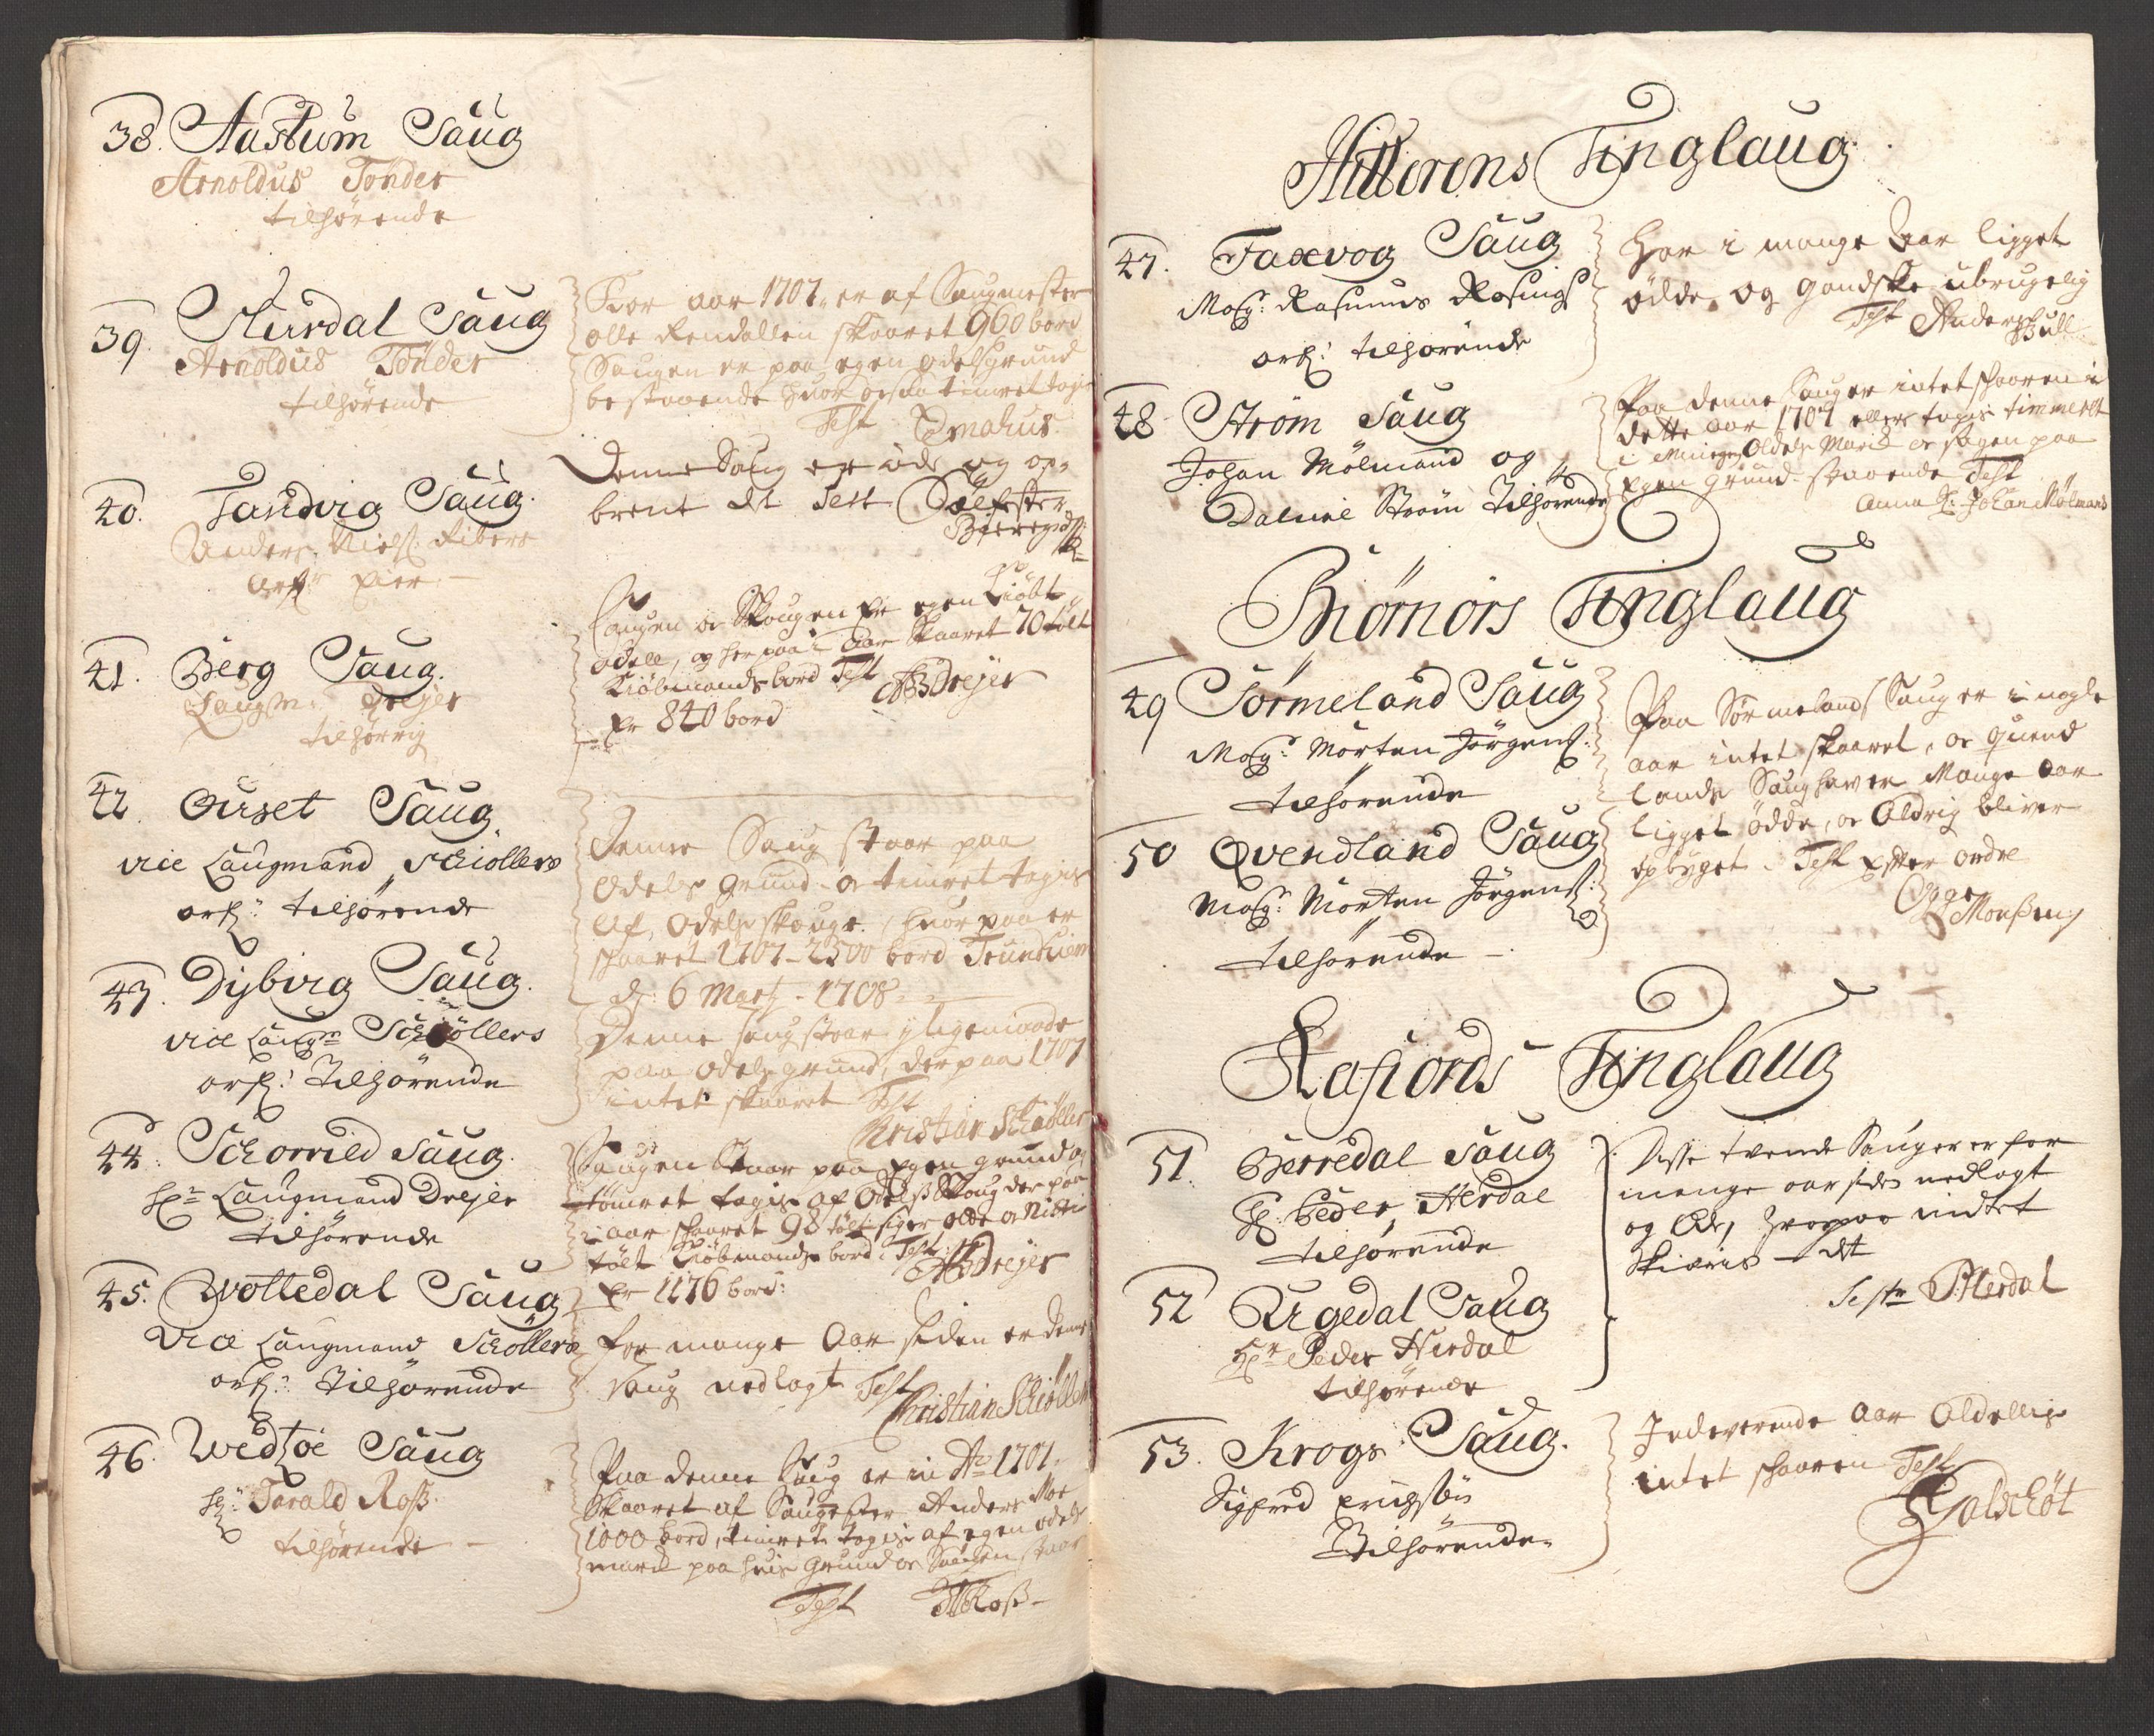 38. Aastum Saug
Arnoldus Tønder
tilhørende
39. Sturdal Saug
Arnoldus Tønder
tilhørende
For aar 1707 er af Saugmester
olle Rendallen skaaret 960 bord
Saugen er paa egen odelsgrund
bestaaende huor ocsaa timret tagis
Test
40. Tandvig Saug
Anders Niels: Riber
Denne Saug er øde og op-
brent dt Test
41. Berg Saug.
Laugm: Drejer
tilhørrig
Saugen oc Skougen er egen Kiøbt
odell, og her paa i Aar Skaaret 70 tølt
Kiøbmands bord Test ABDrejer
er 840 bord
42. Ourset Saug
vice Laugmand Schiøllers
arf: tilhørende
Denne Saug staar paa
Odels Grund oc timret tagis
Af Odels skouge, huor paa er
skaaret 1707 - 2300 bord Trundhiem
d: 6 Marti - 1708
43. Dybvig Saug.
vice Laugm Schiøllers
arf: Tilhørende
Denne saug staar yligemaade
paa odels grund, der paa 1707
intet skaaret Test
Christian Schiøller
44. Schorrild Saug.
Hr Laugmand Drejer
tilhørende
Saugen staar paa Egen grund og
tømret tagis af Odels Skoug der paa
i aar skaaret 98 tølt siger otte oc Nitti
tølt Kiøbmands bord Test ABDrejer
er 1176 bord:
45. Wolledal Saug
Vice Laugmand Schøllers
arf: Tilhørende
for mange Aar siden er denne
saug nedlagt Test
Christian Schiøller
46. Wedtøe Saug
Hr: Tarald Ross.
tilhørende
Paa denne Saug er in Ao 1707
Skaaret af Saugmester Anders Moe
1000 bord, timret tagis af egen odels
march paa huis Grund oc Saugen staar
Test TRoss
Hitterens Tinglaug
47. Faxvog Saug
Mosr: Rasmus Rosings
arf: tilhørende
Har i mange Aar ligget
ødde og gandske ubrugelig
Test Anders Bull
48 Strøm Saug
Johan Mølmand og
Daniel Strøm Tilhørende
Paa denne Saug er intet skaaren i
dette aar 1707 ellers tagis timmeret
i Min egen Odels March oc saugen paa
Egen grund staaende Test
Anna Sl: Johan Mølmans
Biørnørs Tinglaug
49 Sørmeland Saug
Mosr: Morten Jørgens:
tilhørende
Paa Sørmelands Saug er i nogle
aar intet skaaret, oc Quend
lands Saug haver Mange Aar
ligget ødde, oc Aldrig bliver
opbyget. Test Efter ordre
Ogge Monssen
50 Qvendland Saug
Mosr: Morten Jørgens:
tilhørende
Rafiords Tinglaug
51. Børredal Saug
Hr: Peder Herdal
tilhørende
Disse tvende Sauger er for
mange aar siden nedlagt
og Øde, hvorpaa indtet
skiæris dt
Test P:Herdal
52 Ørgedal Saug
Hr Peder Herdal
tilhørende
53. Krogs Saug.
Sigfred Erichsøn
Tilhørende
Indeværende Aar Aldellis
intet skaaren Test